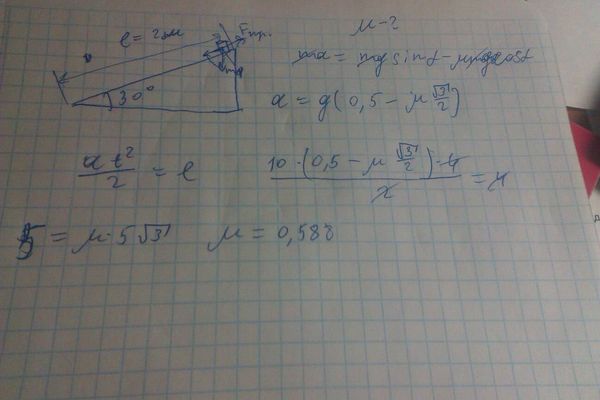 l = 2м
Fтр.
mg
30°
μ - ?
ma = mg sin α - μ mg cos α
a = g(0,5 - μ √3/2)
at²/2 = l
10·(0,5 - μ √3/2)·4/2 = 4
5 = μ·5√3
μ = 0,588